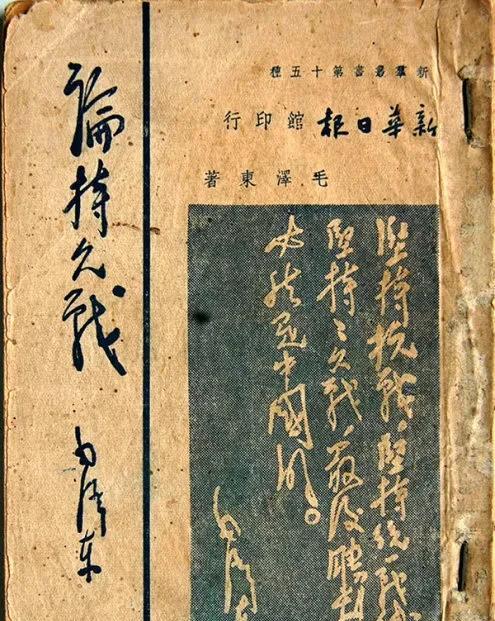 新羣叢書第十五種
新華日报館印行
毛澤東著
堅持抗戰,堅持統一戰線
堅持持久戰,最後勝利
必然是中國的。
毛泽东
論持久戰
毛泽东